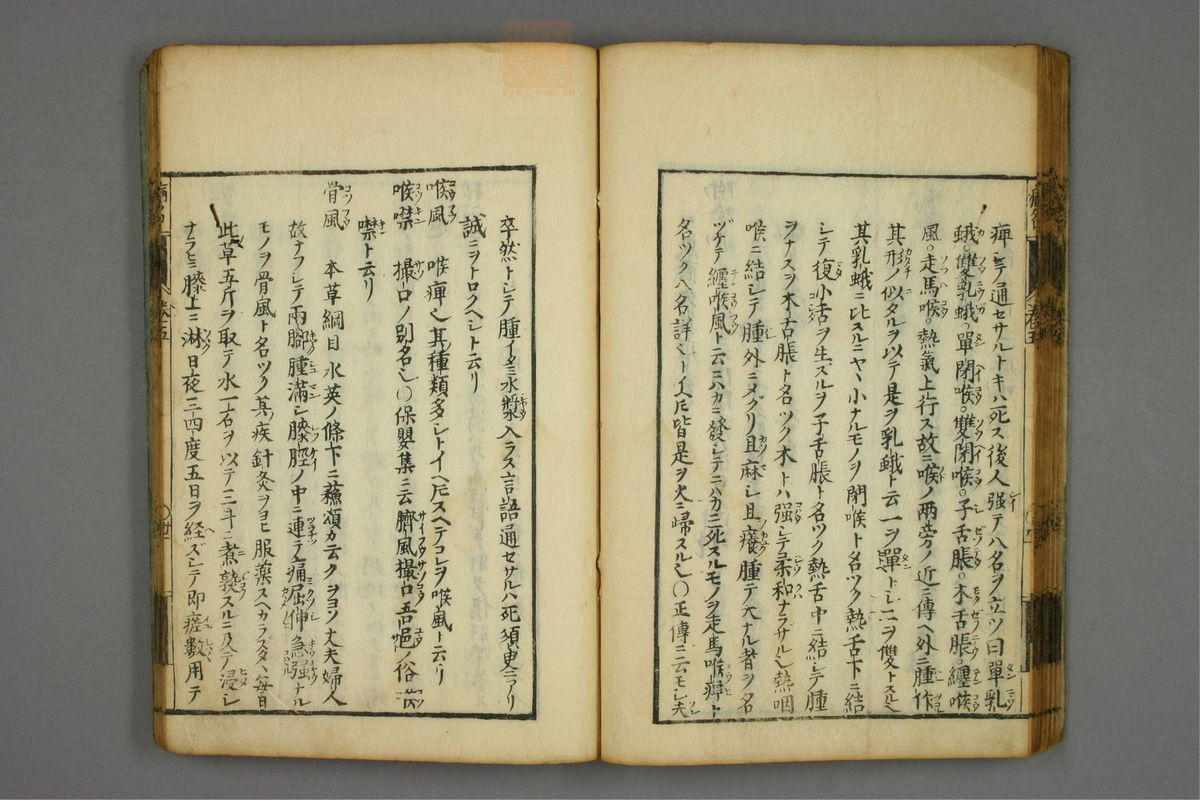 痺シテ通セサルトキハ死ス後人強テ八名ヲ立ツ曰單乳
蛾。雙乳蛾。單閉喉。雙閉喉。子舌脹。木舌脹。纏喉
風。走馬喉。熱氣上行ス故ニ喉ノ兩旁ノ近ニ傳ヘ外ニ腫作
其形ノ似タルヲ以テ是ヲ乳蛾ト云一ヲ單トシ二ヲ雙トスル
其乳蛾ニ比スルニヤヽ小ナルモノヲ閉喉ト名ツク熱舌下ニ結
シテ復小活ヲ生スルヲ子舌脹ト名ツク熱舌中ニ結シテ腫
ヲナスヲ木舌脹ト名ツク木トハ强シテ柔和ナラサル也熱咽
喉ニ結シテ腫外ニメグリ且麻シ且癢腫テ大ナル者ヲ名
ヅケテ纏喉風ト云ニハカニ發シテニハカニ死スルモノヲ走馬喉痺ト
名ツク八名詳ナリトイヘ𪜈皆是ヲ火ニ歸スル也〇正傳ニ云モシ夫
卒然トシテ腫イタミ水漿入ラス言語通セサルハ死須臾ニアリ
誠ニヲトロクヘシト云リ
喉風 喉痺也其種類多シトイヘ𪜈スヘテコレヲ喉風ト云リ
喉噤 撮口ノ別名也〇保嬰集ニ云臍風撮口吾邑俗
噤ト云リ
骨風 本草綱目水英ノ條下ニ蘇頌カ云クヲヨソ丈夫婦人
故ナフシテ兩脚腫滿シ膝脛ノ中ニ連テ痛屈伸急强ナル
モノヲ骨風ト名ツク其疾針灸ヲヨヒ服薬スヘカラズタヽ毎日
此草五斤ヲ取テ水一石ヲ以テ三斗ニ煮熟スルニ及テ浸シ
ナラヒニ膝上ニ淋日夜三四度五日ヲ経ズシテ即瘥數用テ